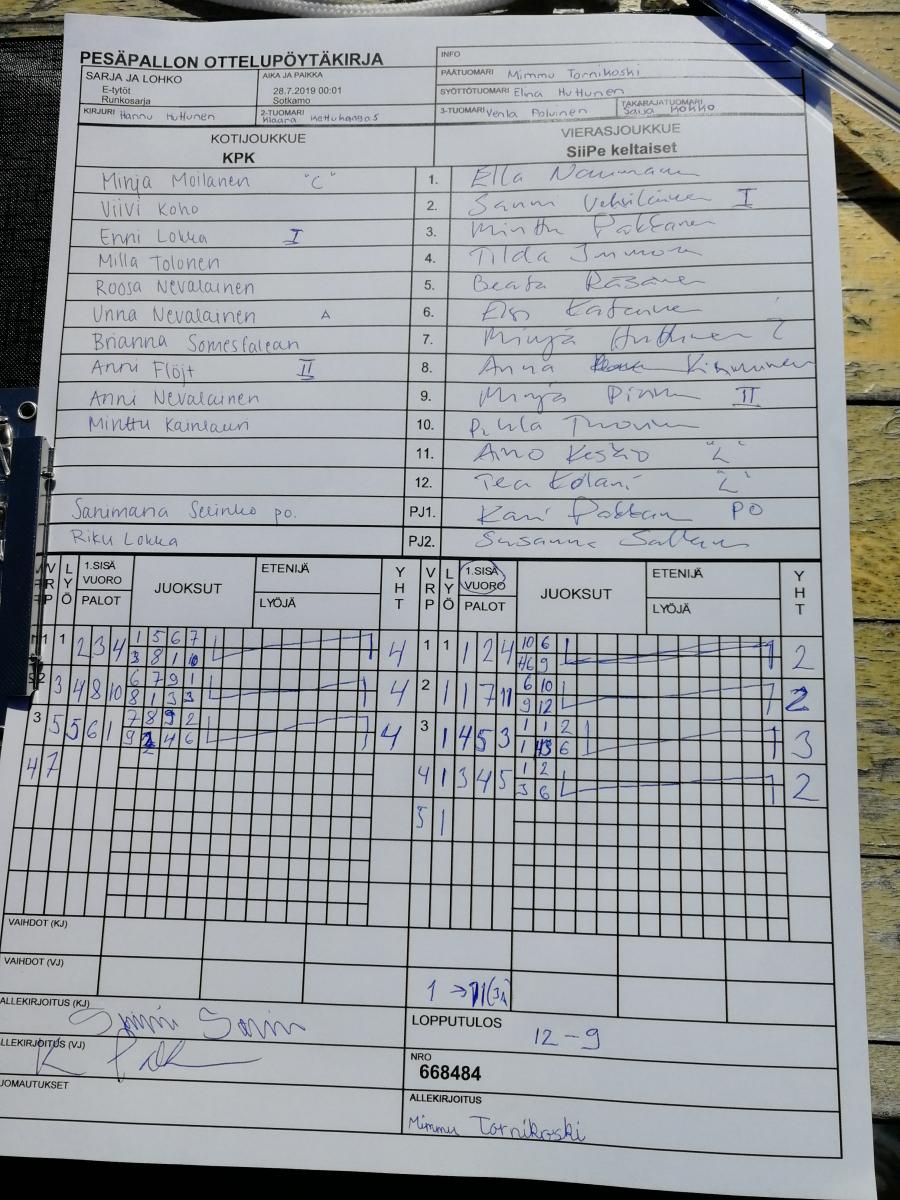 PESÄPALLON OTTELUPÖYTÄKIRJA
INFO
SARJA JA LOHKO
E-tytöt
Runkosarja
AIKA JA PAIKKA
28.7.2019 00:01
Sotkamo
PÄÄTUOMARI Mimmu Tornikoski
SYÖTTÖTUOMARI Elina Huttunen
KIRJURI Hannu Huttunen
2-TUOMARI Klaara Kettukangas
3-TUOMARI Venla Polvinen
TAKARAJATUOMARI Saija Kokko
KOTIJOUKKUE
KPK
VIERASJOUKKUE
SiiPe keltaiset
Minja Moilanen "C" 1. Ella
Viivi Koho 2. Sanni I
Enni Lokka I 3. Minttu Pakkanen
Milla Tolonen 4. Tilda Immonen
Roosa Nevalainen 5. Beata Räsänen
Unna Nevalainen A 6.
Brianna Somesfalean 7. Minja Huttunen
Anni Flöjt II 8. Anna
Anni Nevalainen 9. Minja II
Minttu 10. Pihla
11. Aino "L"
12. Tea "L"
Sanimaria po. PJ1. Kari Pakkanen PO
Riku Lokka PJ2. Susanna
VRP LYÖ 1.SISÄ VUORO PALOT JUOKSUT ETENIJÄ LYÖJÄ YHT VRP LYÖ 1.SISÄ VUORO PALOT JUOKSUT ETENIJÄ LYÖJÄ YHT
1 1 2 3 4 1 5 6 7 4 1 1 1 2 4 10 6 2
3 8 1 10 9
3 4 8 10 6 7 9 1 4 2 1 1 7 11 6 10 2
8 1 3 3 9 12
3 5 5 6 1 7 8 9 2 4 3 1 4 5 3 1 1 2 3
9 2 4 6 1 6
4 7 4 1 3 4 5 1 2 2
3 6
5 1
VAIHDOT (KJ)
VAIHDOT (VJ)
ALLEKIRJOITUS (KJ)
LOPPUTULOS
12-9
ALLEKIRJOITUS (VJ)
NRO
668484
HUOMAUTUKSET
ALLEKIRJOITUS
Mimmu Tornikoski